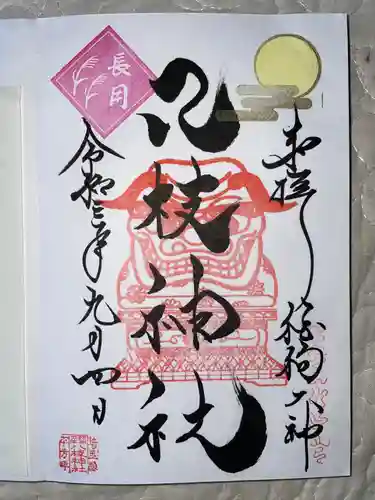 奉拝
狛狗大神
八枝神社
長月
令和三年九月四日